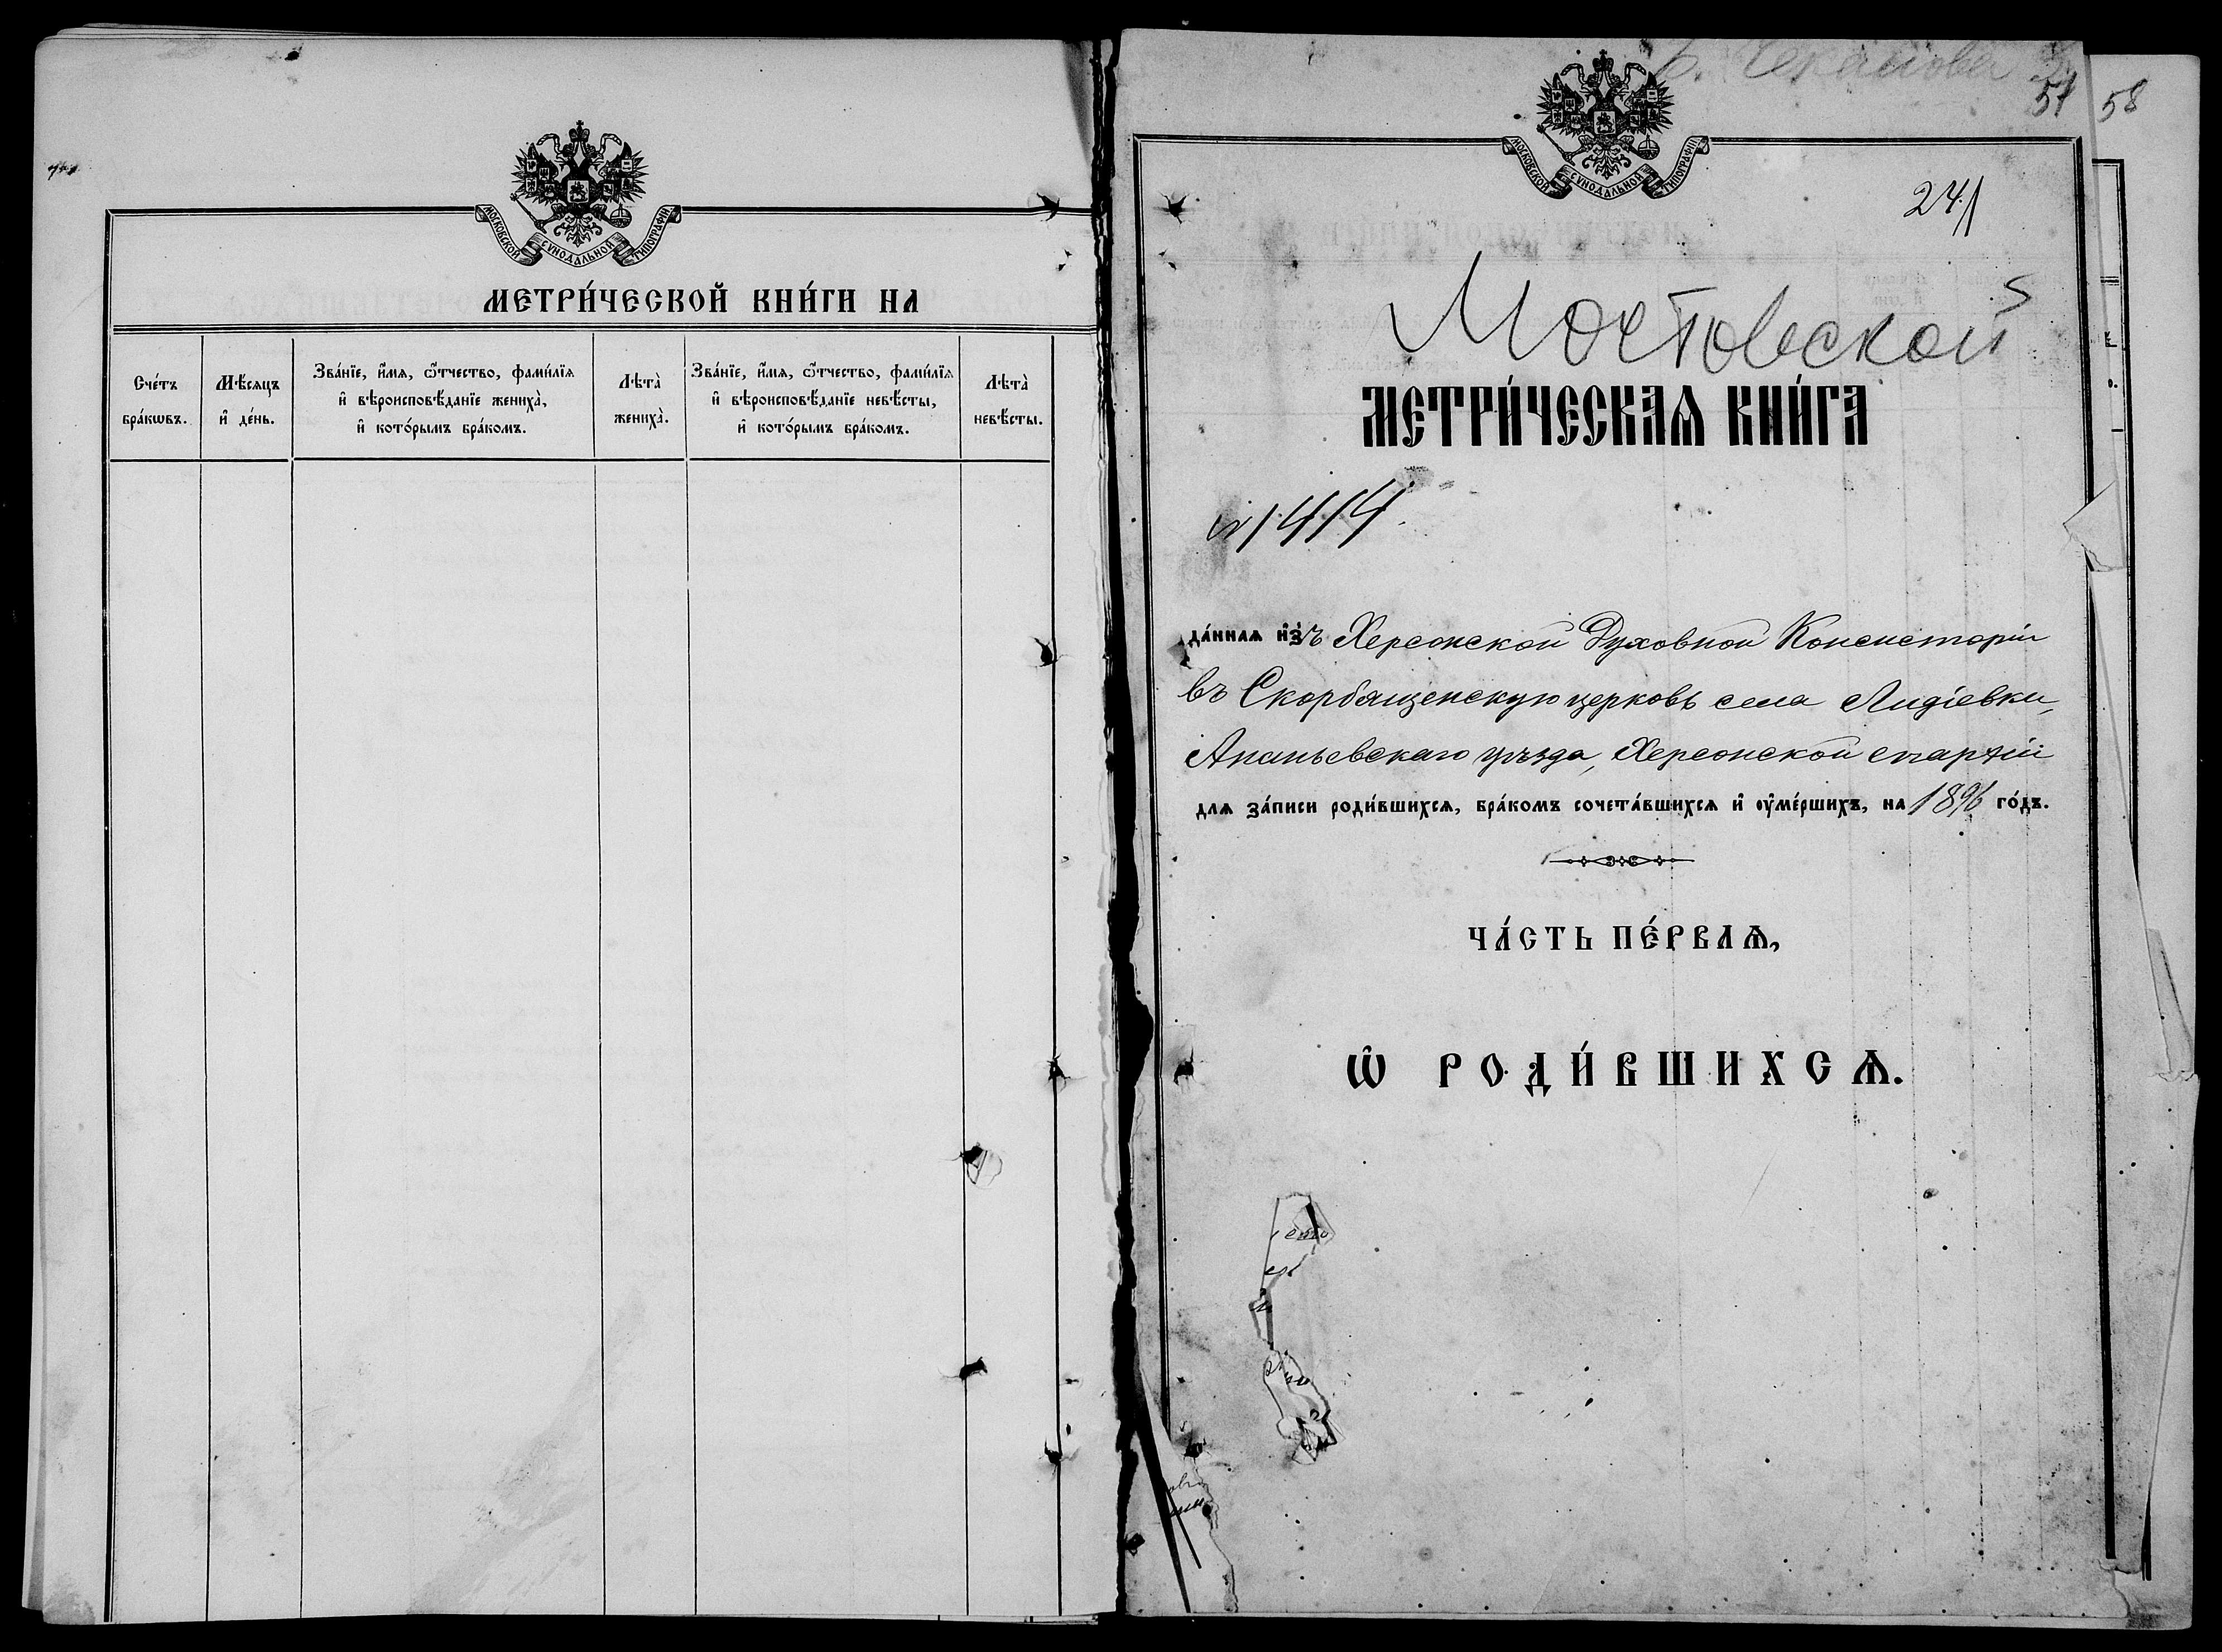 МОСКОВСКОЙ СѴНОДАЛЬНОЙ ТИПОГРАФІИ
МЕТРИ́ЧЕСКОЙ КНИ́ГИ НА
Сче́тъ бра́кѡвъ.
Мѣ́сяцъ и҆ де́нь.
Зва́нїе, и҆́мя, ѻ҆́тчество, фами́лїя
и҆ вѣроисповѣ́данїе жениха̀,
и҆ кото́рымъ бра́комъ.
Лѣта̀ жениха̀.
Зва́нїе, и҆́мя, ѻ҆́тчество, фами́лїя
и҆ вѣроисповѣ́данїе невѣ́сты,
и҆ кото́рымъ бра́комъ.
Лѣта̀ невѣ́сты.
57
58
МОСКОВСКОЙ СѴНОДАЛЬНОЙ ТИПОГРАФІИ
241
Мостовской
МЕТРИ́ЧЕСКАѦ КНИ́ГА
№ 1414.
да́ннаѧ и҆зъ Херсонской Духовной Консисторіи
въ Скорбященскую церковь села Лидіевки,
Ананьевскаго уѣзда, Херсонской епархіи
для за́писи роди́вшихсѧ, бра́комъ сочета́вшихсѧ и҆ ᲂу҆ме́ршихъ, на 1896 го́дъ.
ЧА́СТЬ ПЕ́РВАѦ,
Ѡ҆ РОДИ́ВШИХСѦ.